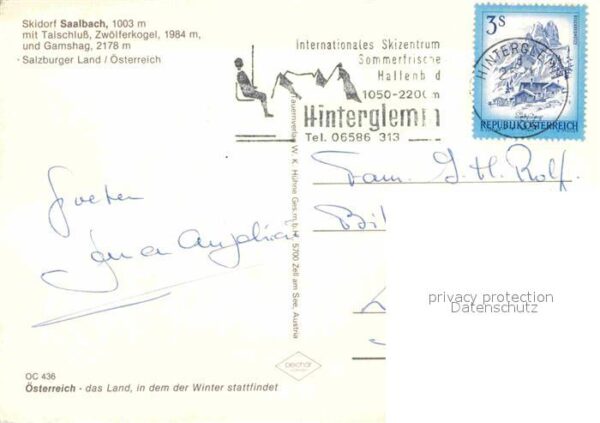 Skidorf Saalbach, 1003 m
mit Talschluß, Zwölferkogel, 1984 m,
und Gamshag, 2178 m
Salzburger Land / Österreich
Internationales Skizentrum
Sommerfrische
Hallenb d
1050-2200m
Hinterglemm
Tel. 06586 313
3S
HINTERGLEMM
REPUBLIK ÖSTERREICH
Fam. J. H. Rolf.
Groeten
privacy protection
Datenschutz
W. K. Hühne Ges.m.b.H. 5700 Zell am See, Austria
OC 436
Österreich - das Land, in dem der Winter stattfindet